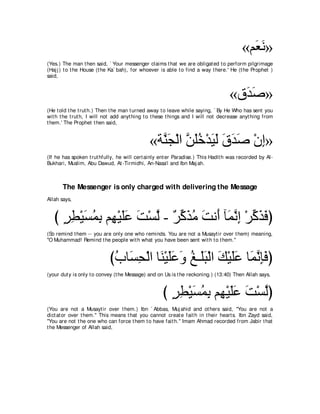 «نَعَمْ»
(Yes.) The man then said, `Your messenger claims that we are obligated to perform pilgrimage
(Hajj) to the House (the Ka`bah), for whoever is able to find a way there.' He (the Prophet )
said,
«صَدَقَ»
(He told the truth.) Then the man turned away to leave while saying, `By He Who has sent you
with the truth, I will not add anything to these things and I will not decrease anything from
them.' The Prophet then said,
«إِنْ صَدَقَ لَيَدْخُلَنَّ الْجَنَّةَ»
(If he has spoken truthfully, he will certainly enter Paradise.) This Hadith was recorded by Al-
Bukhari, Muslim, Abu Dawud, At-Tirmidhi, An-Nasa'i and Ibn Majah.
The Messenger is only charged with delivering the Message
Allah says,
﴿فَذَكِّرْ إِنَّمَآ أَنتَ مُذَكِّرٌ - لَّسْتَ عَلَيْهِم بِمُسَيْطِرٍ ﴾
(So remind them -- you are only one who reminds. You are not a Musaytir over them) meaning,
"O Muhammad! Remind the people with what you have been sent with to them.''
﴿فَإِنَّمَا عَلَيْكَ الْبَلَـغُ وَعَلَيْنَا الْحِسَابُ﴾
(your duty is only to convey (the Message) and on Us is the reckoning.) (13:40) Then Allah says,
﴿لَّسْتَ عَلَيْهِم بِمُسَيْطِرٍ ﴾
(You are not a Musaytir over them.) Ibn `Abbas, Mujahid and others said, "You are not a
dictator over them.'' This means that you cannot create faith in their hearts. Ibn Zayd said,
"You are not the one who can force them to have faith.'' Imam Ahmad recorded from Jabir that
the Messenger of Allah said,